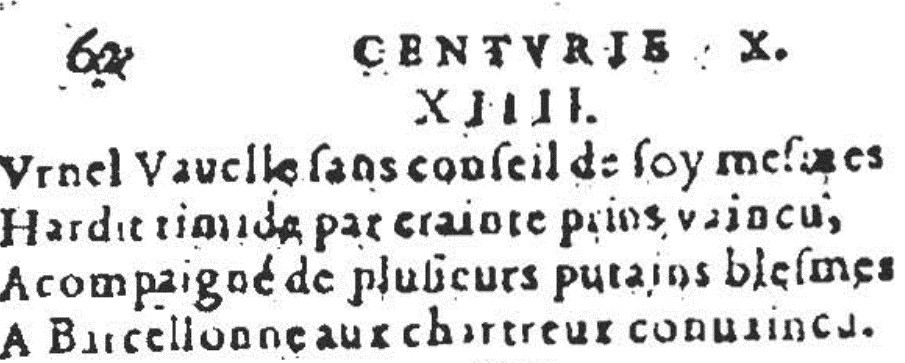 62
CENTVRIE X.
XIIII.
Vrnel Vaucile ſans conſeil de ſoy meſmes
Hardit timide par crainte prins vaincu,
Acompaigné de pluſieurs putains bleſmes
A Barcellonne aux chartreux conuaincu.